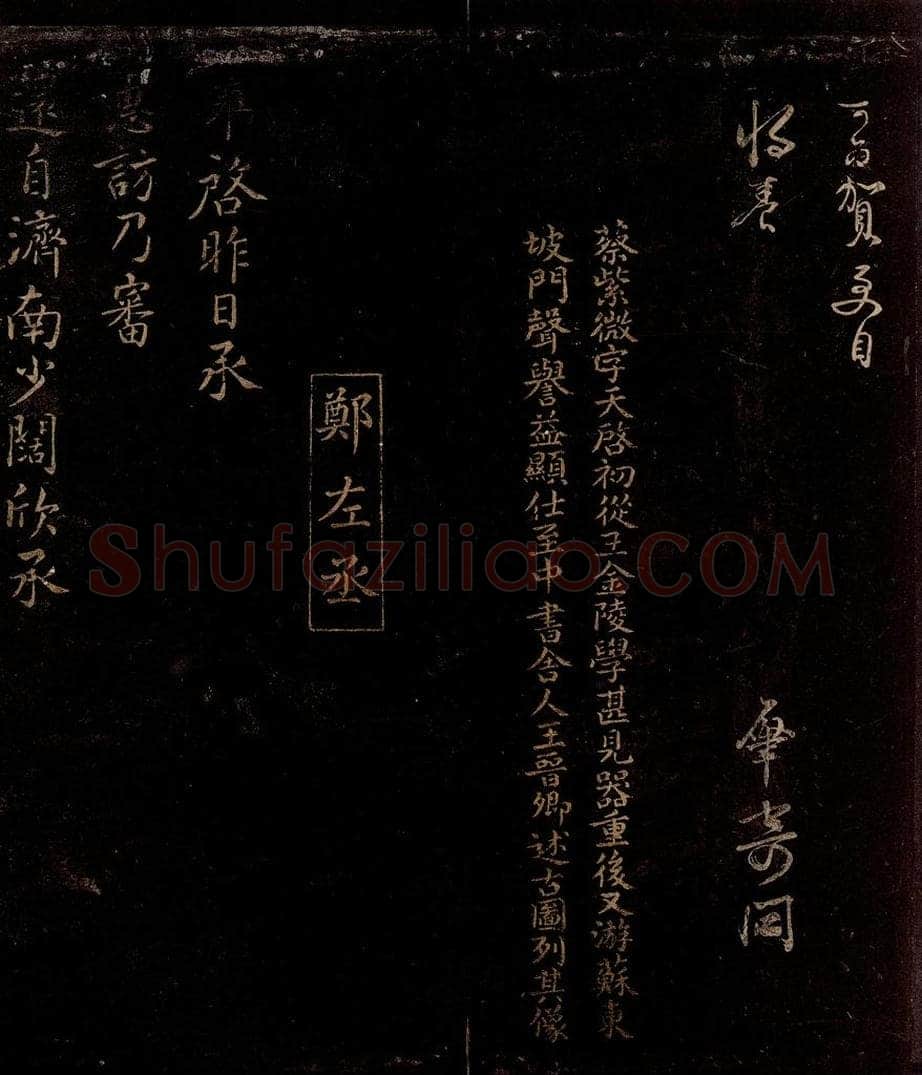 賀
目
将養
蔡紫微字天啓初從王金陵學甚見器重後又游蘇東
坡門聲譽益顯仕至中書舍人王晉卿述古圖列其像
鄭左丞
啓昨日承
惠訪乃審
還自濟南少闊欣承
Shufaziliao.COM